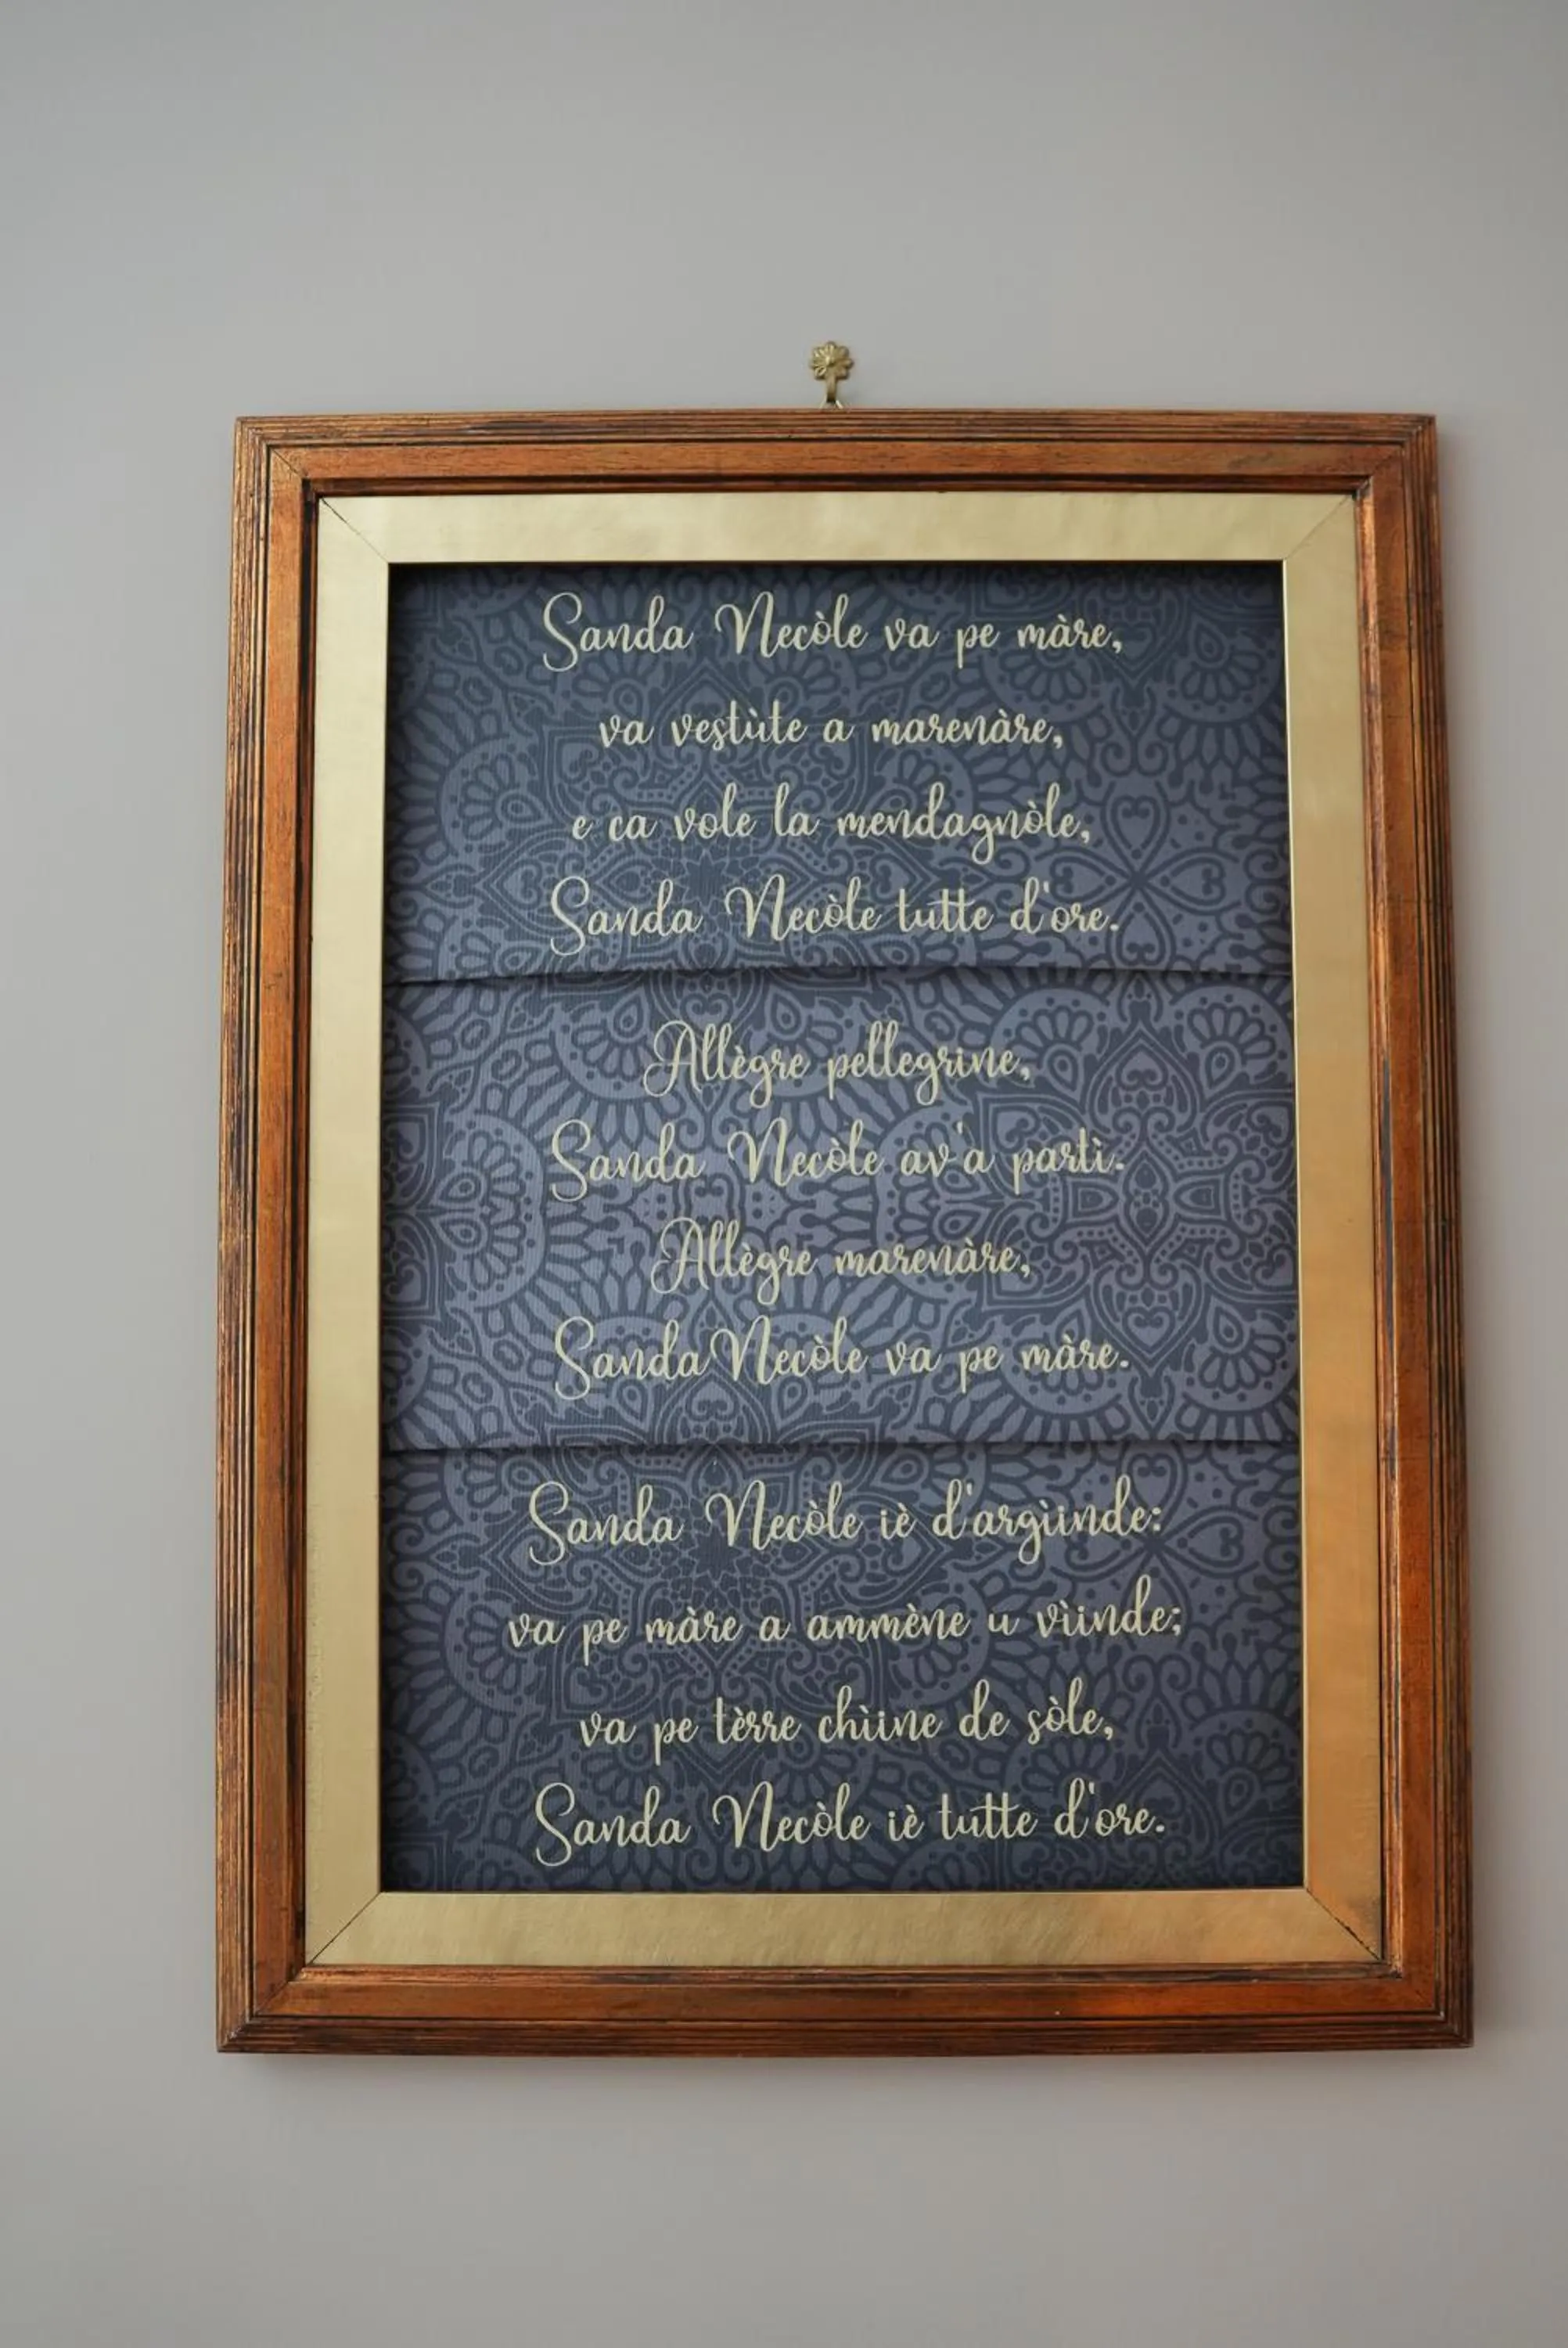 Sanda Necòle va pe màre,
va vestùte a marenàre,
e ca vole la mendagnòle,
Sanda Necòle tutte d'ore.
Allègre pellegrine,
Sanda Necòle av'a partì.
Allègre marenàre,
Sanda Necòle va pe màre.
Sanda Necòle iè d'argìinde:
va pe màre a ammène u vìinde;
va pe tèrre chìine de sòle,
Sanda Necòle iè tutte d'ore.